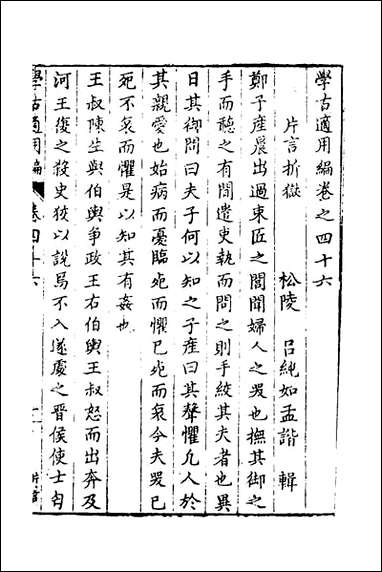 學古適用編卷之四十六
松陵 呂純如孟諧 輯
片言折獄
鄭子產晨出過東匠之閭聞婦人之哭也撫其御之
手而聽之有間遣吏執而問之則手絞其夫者也異
日其御問曰夫子何以知之子產曰其聲懼凡人於
其親愛也始病而憂臨死而懼已死而哀今夫哭已
死不哀而懼是以知其有姦也
王叔陳生與伯輿爭政王右伯輿王叔怒而出奔及
河王復之殺史狡以說焉不入遂處之晉侯使士匄
學古適用編 卷四十六